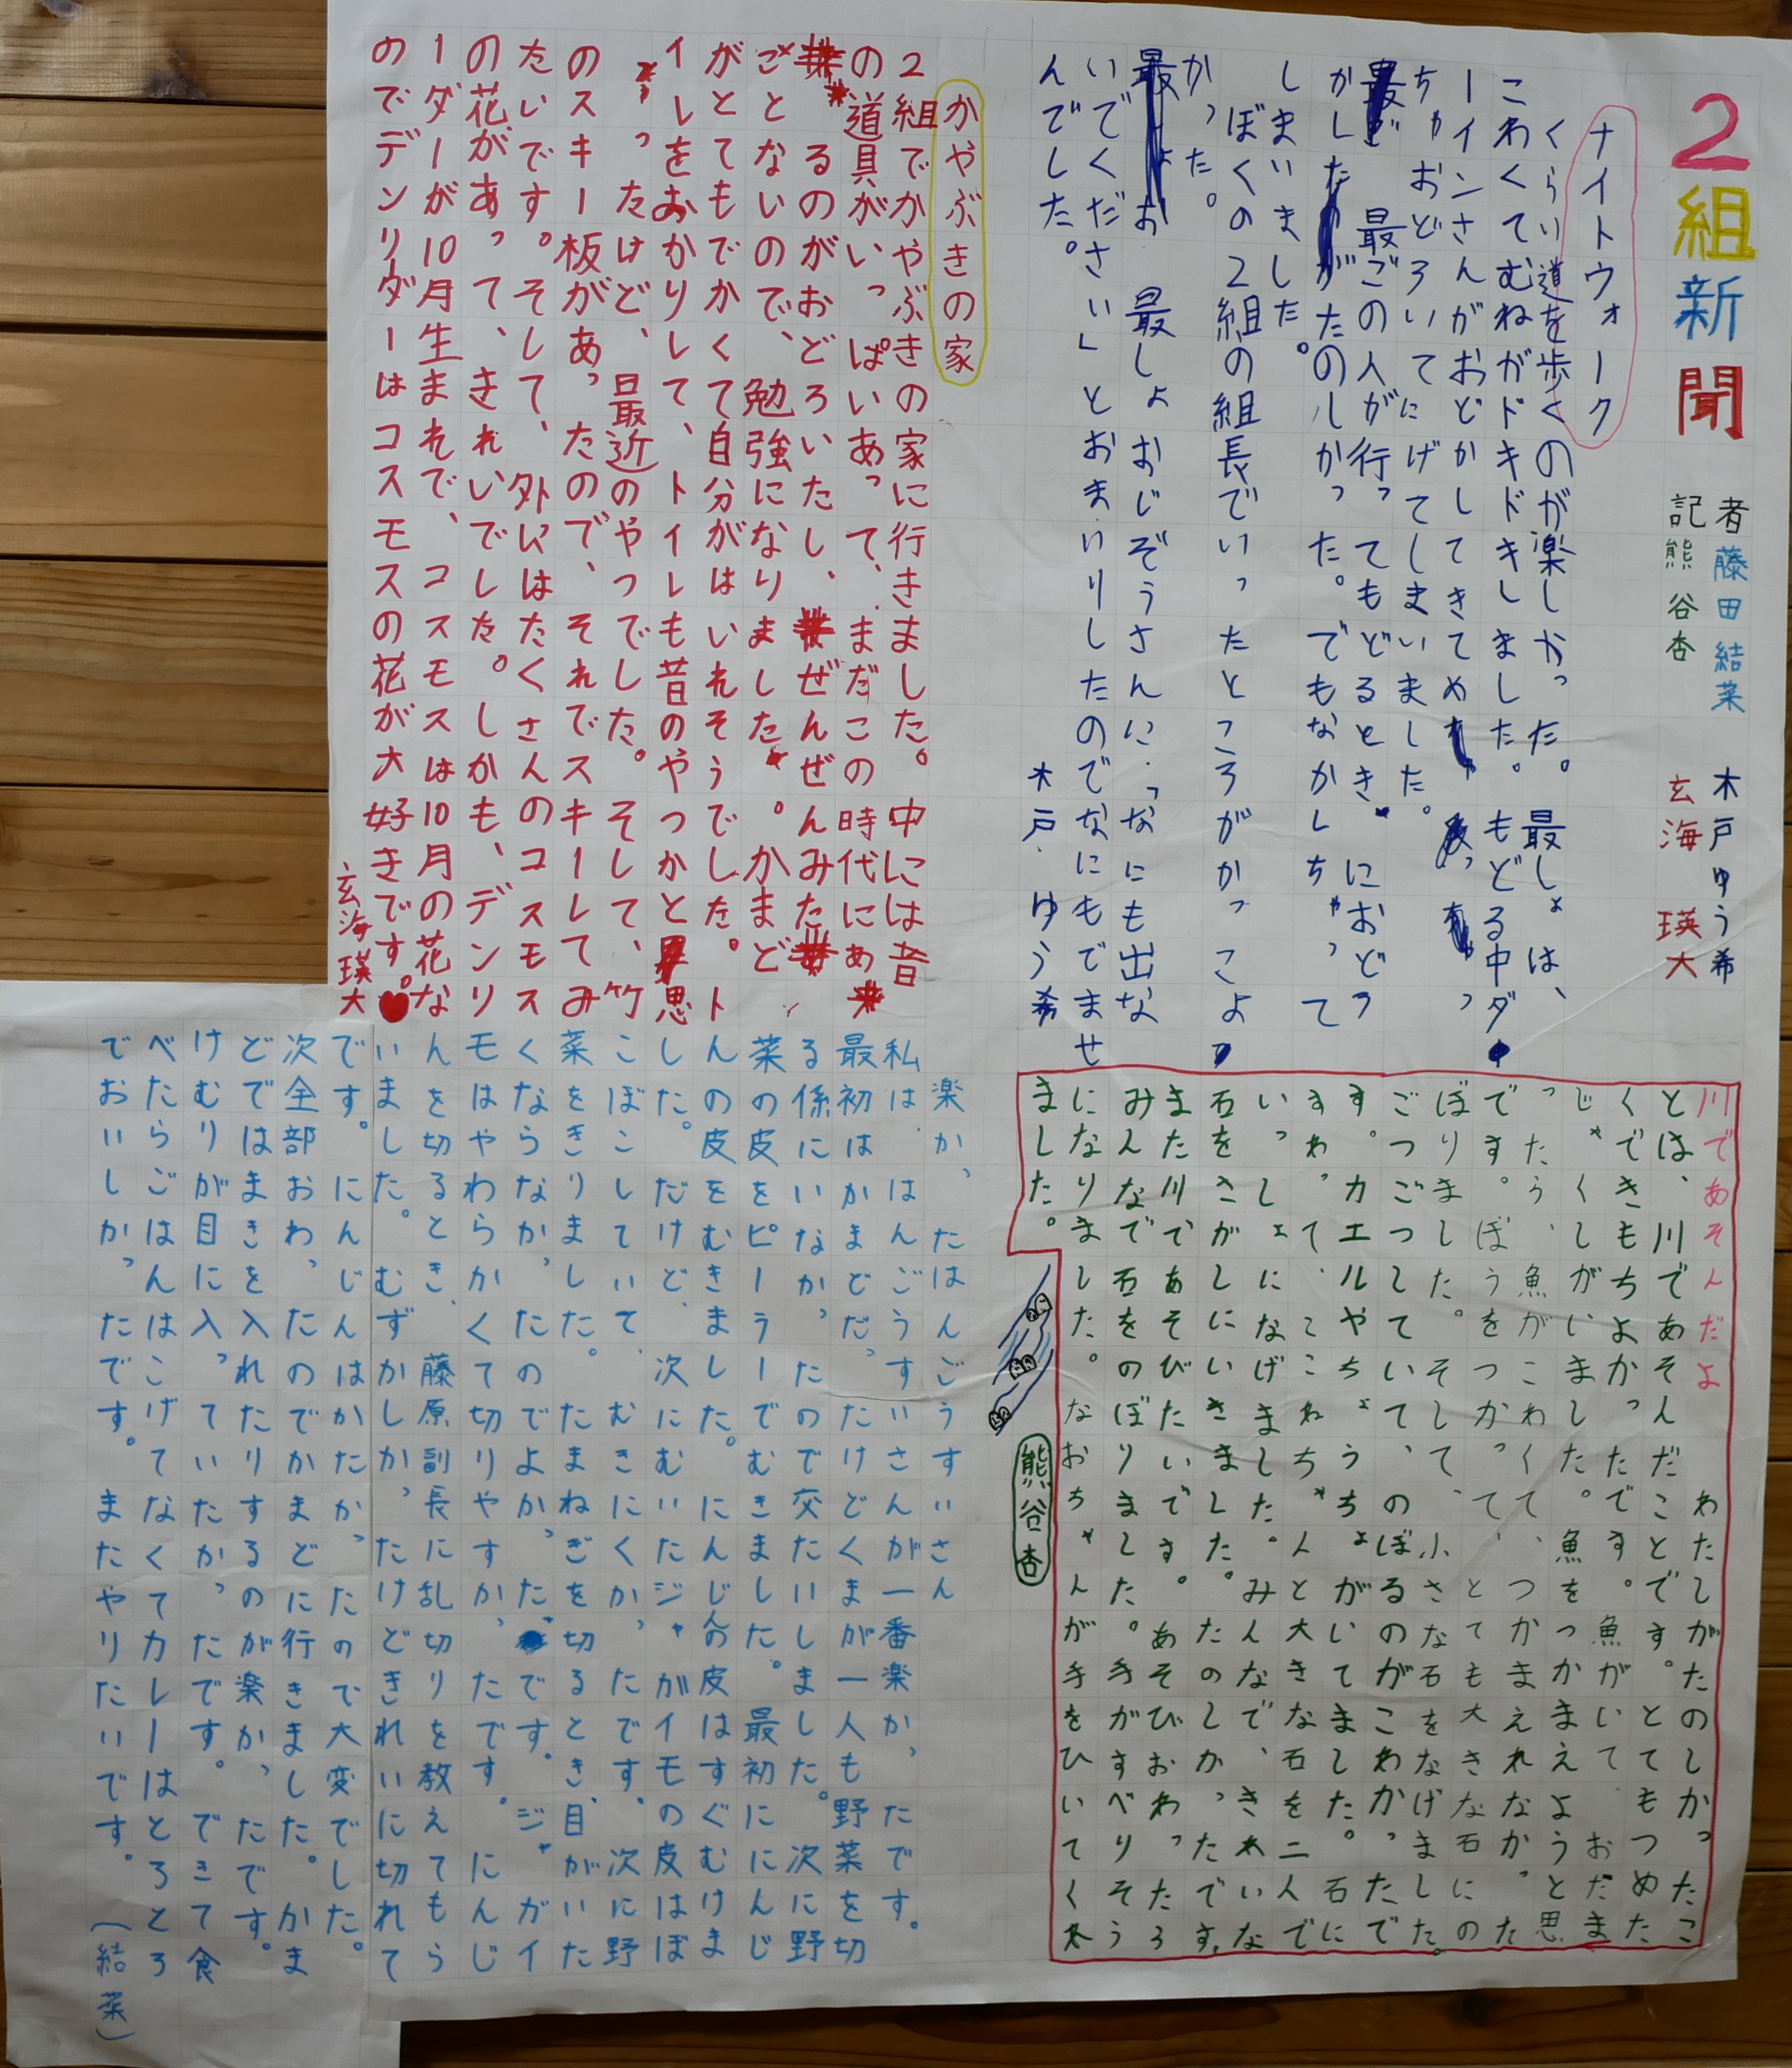 2組新聞
記者
藤田結菜
熊谷杏
木戸ゆう希
玄海瑛大
ナイトウォーク
くらい道を歩くのが楽しかった。最しょは、
こわくてむねがドキドキしました。もどる中ダ
ーインさんがおどかしてきてめ
ちゃおどろいてにげてしまいました。
最ごの人が行ってもどるとき、におどう
かしたがたのしかった。でもなかしちゃって
しまいました。
ぼくの2組の組長でいったところがかっこよ
かった。
お最しょおじぞうさんに「なにも出な
いでください」とおまいりしたのでなにもでませ
んでした。
木戸ゆう希
川であそんだよ
わたしがたのしかったこ
とは、川であそんだことです。とてもつめた
くできもちよかったです。魚がいておだま
じゃくしがいました。魚をつかまえようと思
ったら、魚がこわくて、つかまえれなかったた
です。ぼうをつかって、とても大きな石にの
ぼりました。そして、小さな石をなげました。
ごつごつしていて、のぼるのがこわかったで
す。カエルやちょうちょがいてました。石に
すわって、こころちゃんと大きな石を二人で
いっしょになげました。みんなで、きれいな
石をさがしにいきました。たのしかったです。
また川であそびたいです。あそびおわったろ
みんなで石をのぼりました。手がすべりそう
になりました。なおちゃんが手をひいてくれ
ました。
熊谷杏
かやぶきの家
2組でかやぶきの家に行きました。中には昔
の道具がいっぱいあって、まだこの時代にあ
るのがおどろいたし、ぜんぜんみた
ごとないので、勉強になりました。かまど
がとてもでかくて自分がはいれそうでした。ト
イレをおかりして、トイレも昔のやつかと思
ったけど、最近のやつでした。そして、竹
のスキー板があったので、それでスキーしてみ
たいです。そして、外にはたくさんのコスモス
の花があって、きれいでした。しかも、デンリ
ーダーが10月生まれで、コスモスは10月の花な
のでデンリダーはコスモスの花が大好きです。
玄海瑛大
楽かったはんごうすいさん
私は、はんごうすいさんが一番楽かったです。
最初はかまどだったけどくまが一人も野菜を切
る係にいなかったので交たいしました。次に野
菜の皮をピーラーでむきました。最初ににんじ
んの皮をむきました。にんじんの皮はすぐむけま
した。だけど、次にむいたジャガイモの皮はぼ
こぼこしていて、むきにくかったです。次に野
菜をきりました。たまねぎを切るとき、目がいた
くならなかったのでよかったです。ジャガイ
モはやわらかくて切りやすかったです。にんじ
んを切るとき、藤原副長に乱切りを教えてもら
いました。むずかしかったけどきれいに切れて
です。にんじんはかたかったので大変でした。
次全部おわったのでかまどに行きました。かま
どではまきを入れたりするのが楽かったです。
けむりが目に入っていたかったです。できて食
べたらごはんはこげてなくてカレーはとろとろ
でおいしかったです。またやりたいです。(結菜)